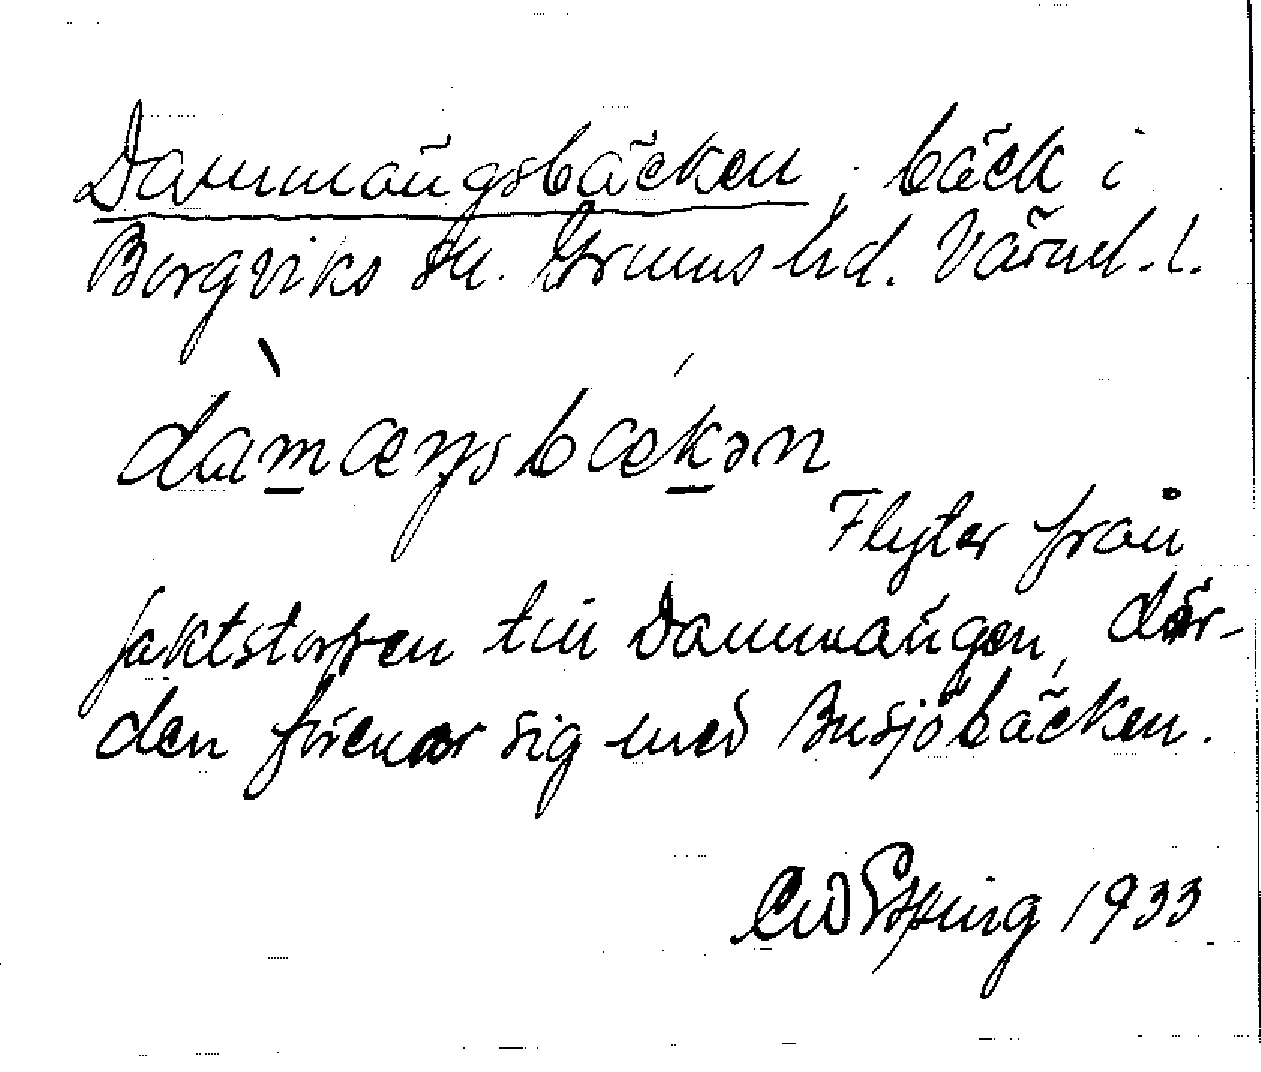 Dammängsbäcken, bäck i
Borgviks sn. Grums hd. Värml. l.
dàmæŋsbækən
Flyter från
Jaktstorpen till Dammängen, där-
den förenar sig med Busjöbäcken.
1933